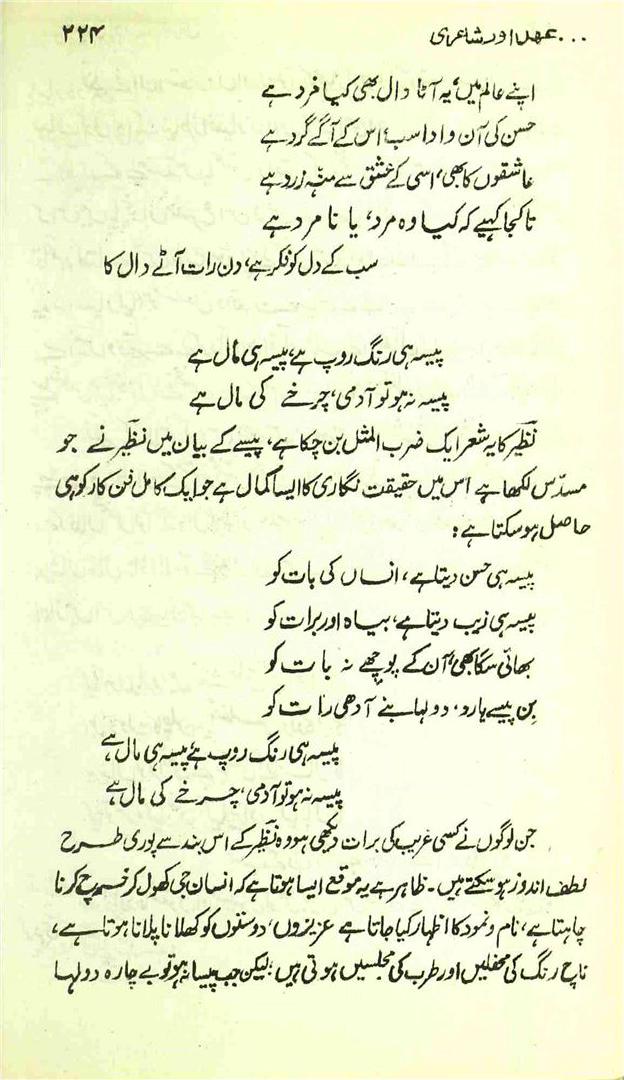 ... عہد اور شاعری ۲۲۴
اپنے عالم میں، یہ آٹا دال بھی کیا فرد ہے
حسن کی آن و ادا سب، اس کے آگے گرد ہے
عاشقوں کا بھی، اسی کے عشق سے منہ زرد ہے
تا کجا کہیے کہ کیا وہ مرد، یا نامرد ہے
سب کے دل کو فکر ہے، دن رات آٹے دال کا
پیسہ ہی رنگ روپ ہے، پیسہ ہی مال ہے
پیسہ نہ ہو تو آدمی، چرخے کی مال ہے
نظیر کا یہ شعر ایک ضرب المثل بن چکا ہے، پیسے کے بیان میں نظیر نے جو
مسدّس لکھا ہے اس میں حقیقت نگاری کا ایسا کمال ہے جو ایک کامل فن کار کو ہی
حاصل ہو سکتا ہے:
پیسہ ہی حسن دیتا ہے، انساں کی بات کو
پیسہ ہی زیب دیتا ہے، بیاہ اور برات کو
بھائی سگا بھی، آن کے پوچھے نہ بات کو
بن پیسے یارو، دولہا بنے آدھی رات کو
پیسہ ہی رنگ روپ ہے پیسہ ہی مال ہے
پیسہ نہ ہو تو آدمی، چرخے کی مال ہے
جن لوگوں نے کسی غریب کی برات دیکھی ہو وہ نظیر کے اس بند سے پوری طرح
لطف اندوز ہو سکتے ہیں۔ ظاہر ہے یہ موقع ایسا ہوتا ہے کہ انسان جی کھول کر خرچ کرنا
چاہتا ہے، نام و نمود کا اظہار کیا جاتا ہے عزیزوں، دوستوں کو کھلانا پلانا ہوتا ہے،
ناچ رنگ کی محفلیں اور طرب کی مجلسیں ہوتی ہیں؛ لیکن جب پیسا نہ ہو تو بے چارہ دولہا